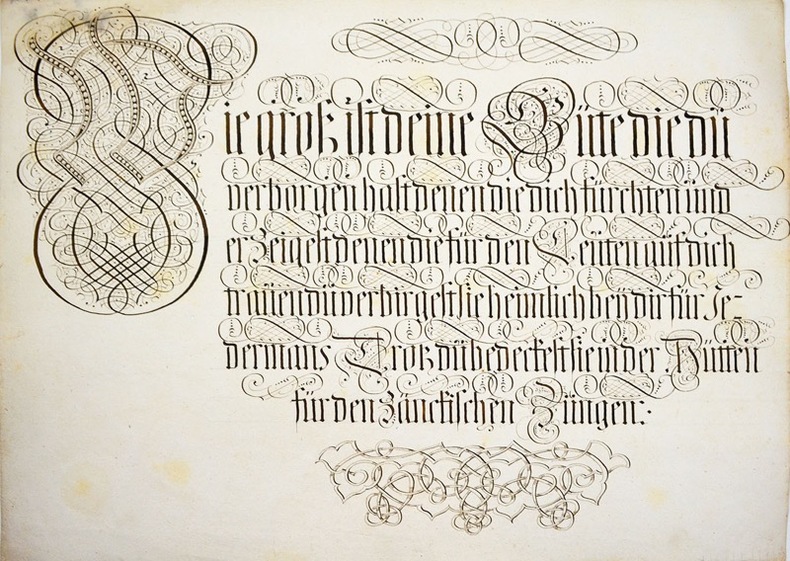 Wie groß ist deine Güte die dü
verborgen hast denen die dich fürchten ünd
erzeigest denen die für den Leüten aüf dich
traüen dü verbirgest sie heimlich beÿ dir für Je=
dermans Troß dü bedeckest sie in der Hütten
für den Zänckischen Züngen.